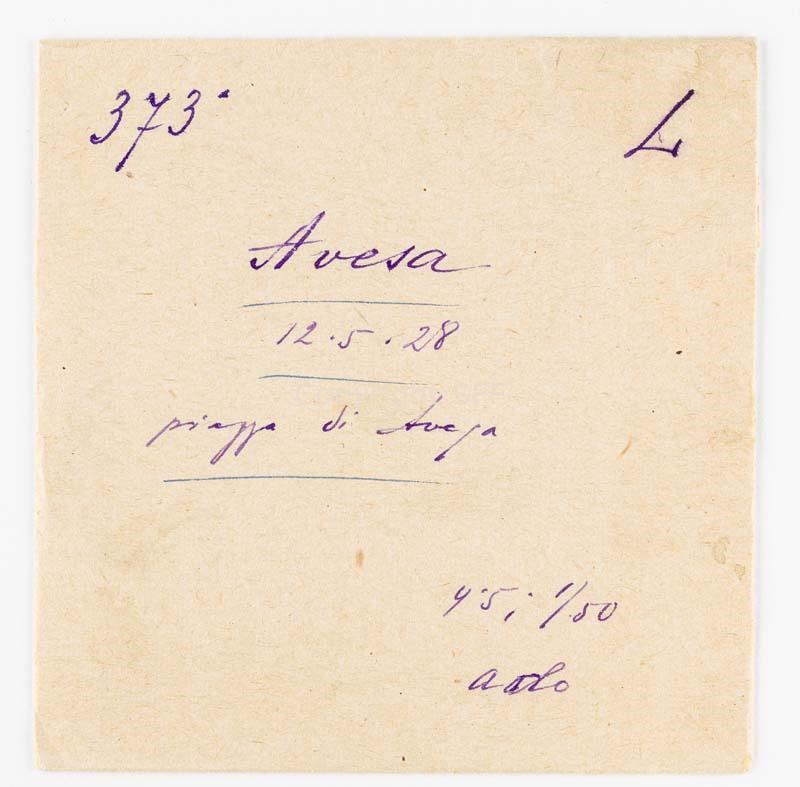 373ª L
Avesa
12.5.28
piazza di Avesa
4.5; 1/50